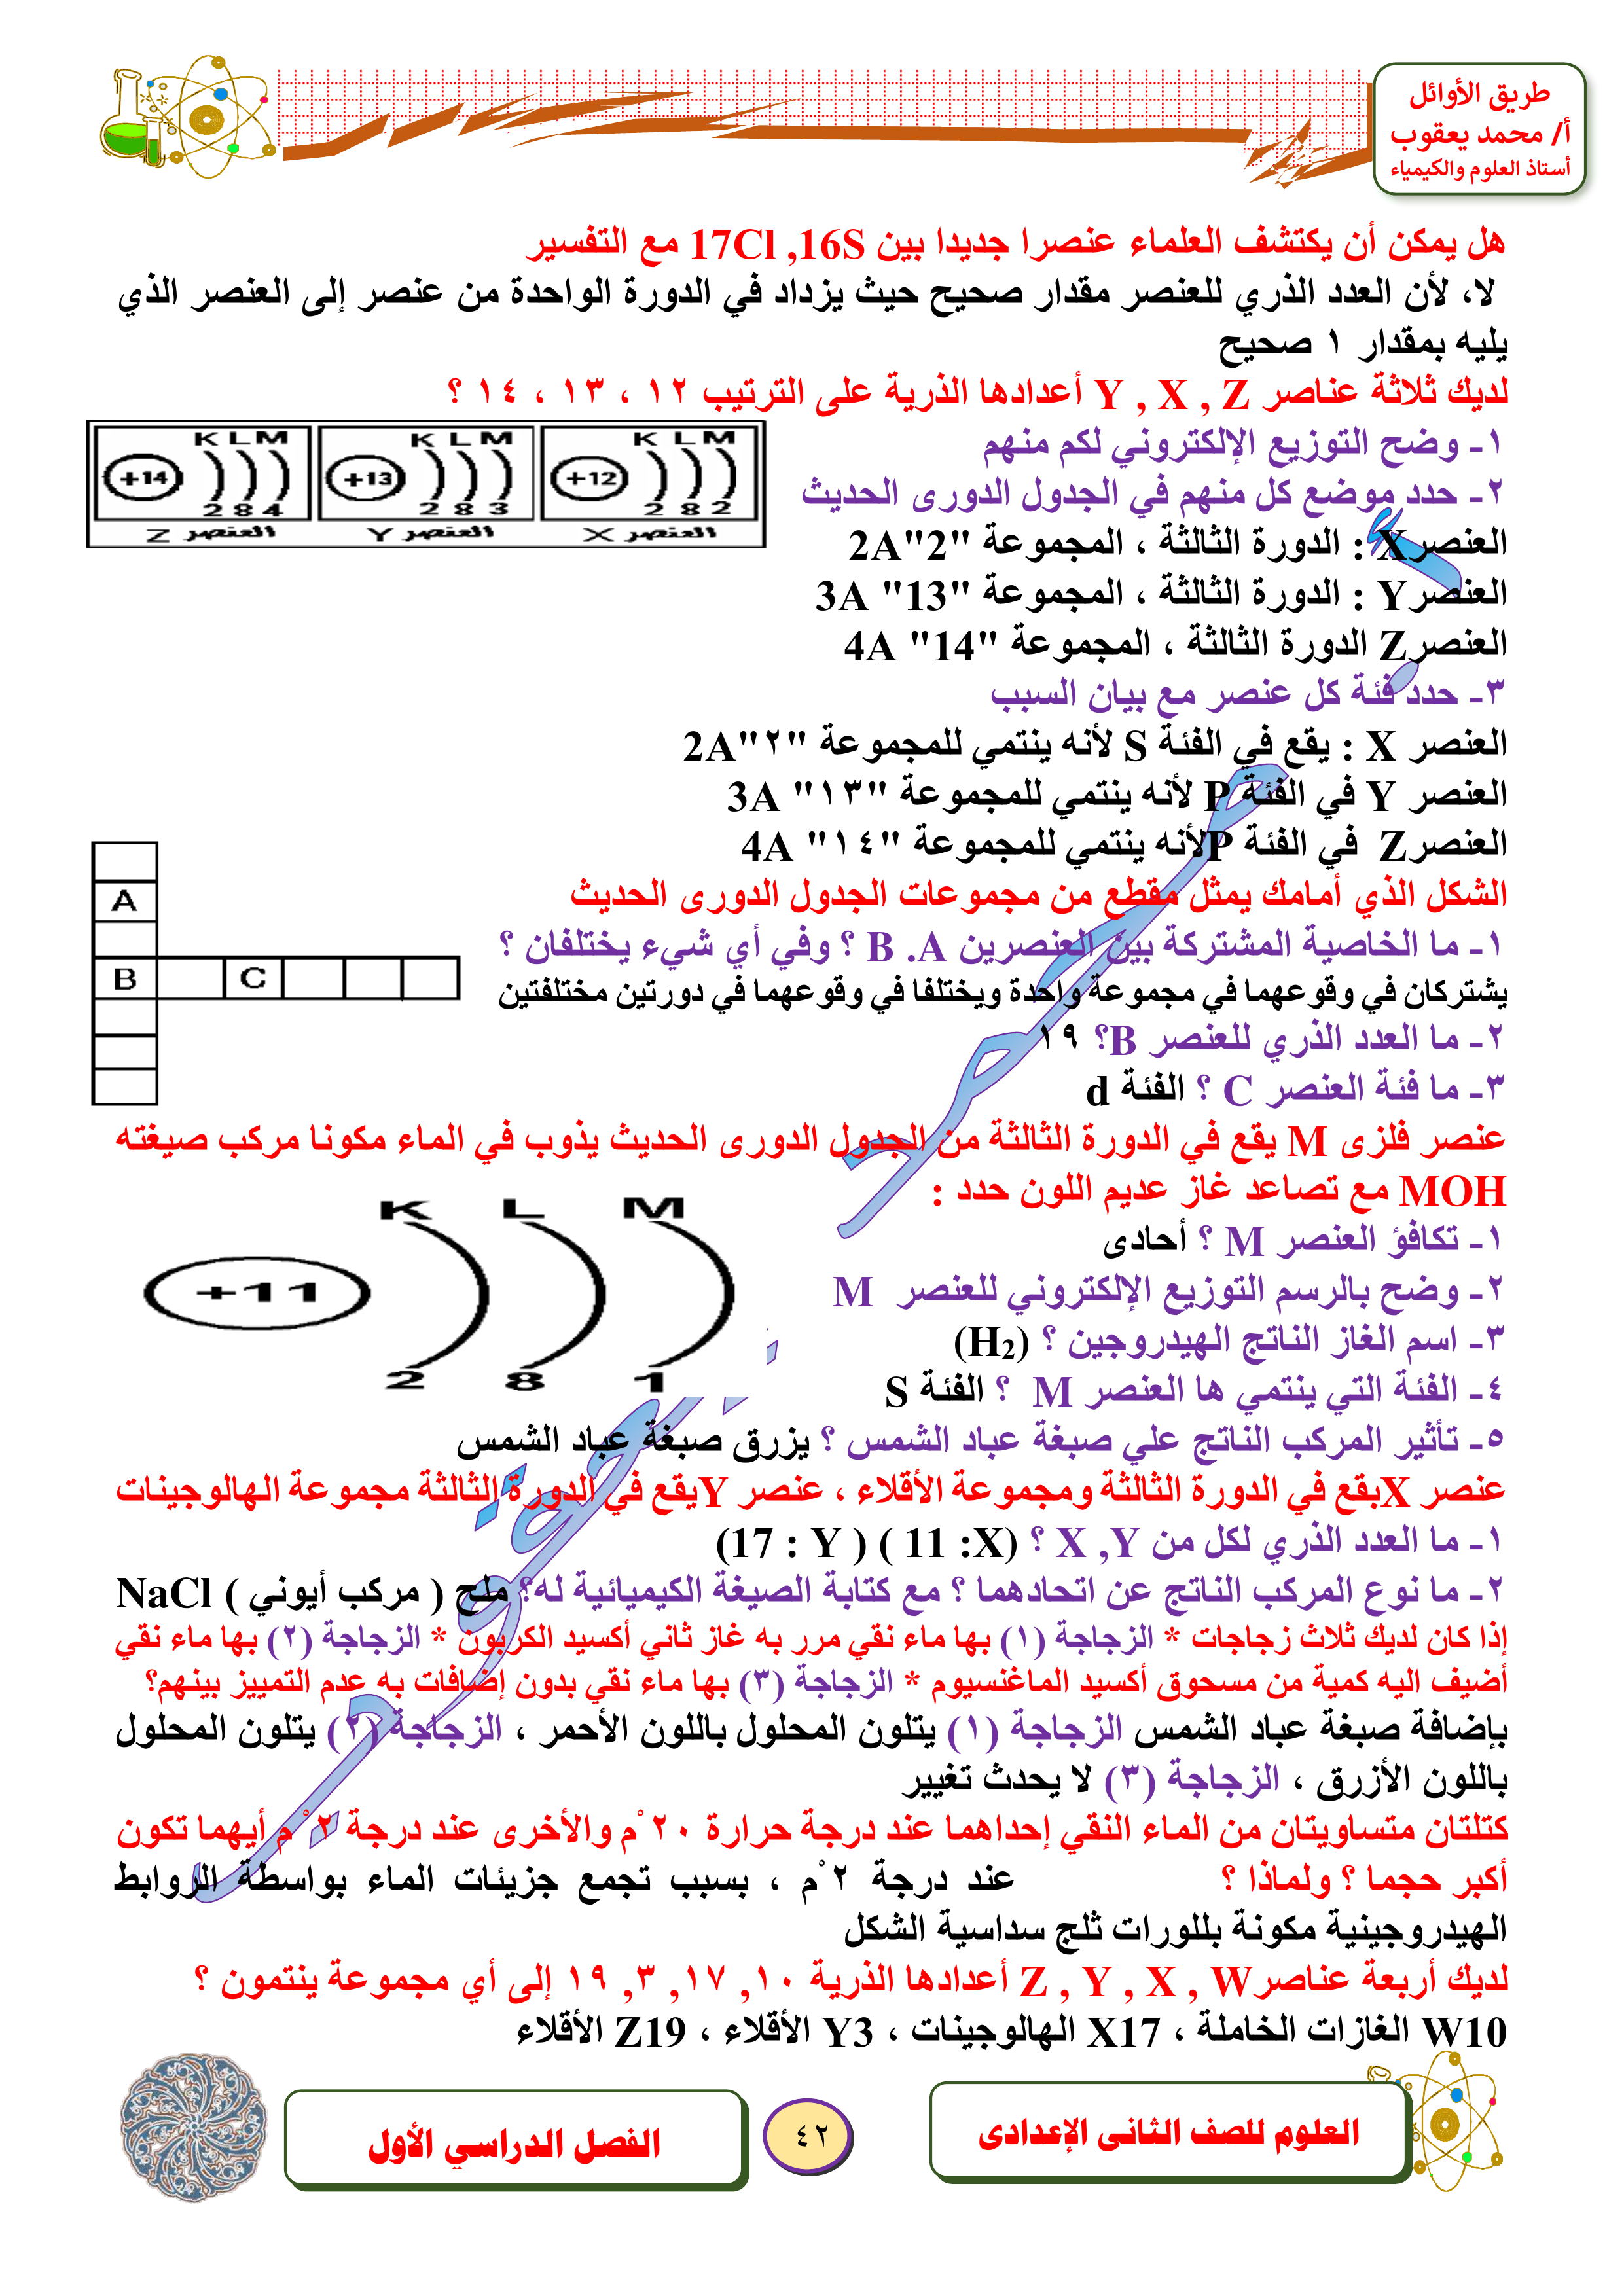 طريق الأوائل
أ/ محمد يعقوب
أستاذ العلوم والكيمياء
هل يمكن أن يكتشف العلماء عنصرا جديدا بين 17Cl ,16S مع التفسير
لا، لأن العدد الذري للعنصر مقدار صحيح حيث يزداد في الدورة الواحدة من عنصر إلى العنصر الذي
يليه بمقدار ١ صحيح
لديك ثلاثة عناصر Y , X , Z أعدادها الذرية على الترتيب ١٢ ، ١٣ ، ١٤ ؟
١- وضح التوزيع الإلكتروني لكم منهم
K L M K L M K L M
+14 +13 +12
2 8 4 2 8 3 2 8 2
العنصر Z العنصر Y العنصر X
٢- حدد موضع كل منهم في الجدول الدورى الحديث
العنصرX : الدورة الثالثة ، المجموعة "2"2A
العنصرY : الدورة الثالثة ، المجموعة "13" 3A
العنصرZ الدورة الثالثة ، المجموعة "14" 4A
٣- حدد فئة كل عنصر مع بيان السبب
العنصر X : يقع في الفئة S لأنه ينتمي للمجموعة "٢"2A
العنصر Y في الفئة P لأنه ينتمي للمجموعة "١٣" 3A
العنصرZ في الفئة Pلأنه ينتمي للمجموعة "١٤" 4A
الشكل الذي أمامك يمثل مقطع من مجموعات الجدول الدورى الحديث
A
B C
١- ما الخاصية المشتركة بين العنصرين B .A ؟ وفي أي شيء يختلفان ؟
يشتركان في وقوعهما في مجموعة واحدة ويختلفا في وقوعهما في دورتين مختلفتين
٢- ما العدد الذري للعنصر B؟ ١٩
٣- ما فئة العنصر C ؟ الفئة d
عنصر فلزى M يقع في الدورة الثالثة من الجدول الدورى الحديث يذوب في الماء مكونا مركب صيغته
MOH مع تصاعد غاز عديم اللون حدد :
K L M
+11
2 8 1
١- تكافؤ العنصر M ؟ أحادى
٢- وضح بالرسم التوزيع الإلكتروني للعنصر M
٣- اسم الغاز الناتج الهيدروجين ؟ (H₂)
٤- الفئة التي ينتمي ها العنصر M ؟ الفئة S
٥- تأثير المركب الناتج علي صبغة عباد الشمس ؟ يزرق صبغة عباد الشمس
عنصر Xبقع في الدورة الثالثة ومجموعة الأقلاء ، عنصر Yيقع في الدورة الثالثة مجموعة الهالوجينات
١- ما العدد الذري لكل من X ,Y ؟ (X: 11 ) ( Y : 17)
٢- ما نوع المركب الناتج عن اتحادهما ؟ مع كتابة الصيغة الكيميائية له؟ ملح ( مركب أيوني ) NaCl
إذا كان لديك ثلاث زجاجات * الزجاجة (١) بها ماء نقي مرر به غاز ثاني أكسيد الكربون * الزجاجة (٢) بها ماء نقي
أضيف اليه كمية من مسحوق أكسيد الماغنسيوم * الزجاجة (٣) بها ماء نقي بدون إضافات به عدم التمييز بينهم؟
بإضافة صبغة عباد الشمس الزجاجة (١) يتلون المحلول باللون الأحمر ، الزجاجة (٢) يتلون المحلول
باللون الأزرق ، الزجاجة (٣) لا يحدث تغيير
كتلتان متساويتان من الماء النقي إحداهما عند درجة حرارة ٢٠ ْم والأخرى عند درجة ٢ ْ م أيهما تكون
أكبر حجما ؟ ولماذا ؟ عند درجة ٢ ْم ، بسبب تجمع جزيئات الماء بواسطة الروابط
الهيدروجينية مكونة بللورات ثلج سداسية الشكل
لديك أربعة عناصرZ , Y , X , W أعدادها الذرية ١٠, ١٧, ٣, ١٩ إلى أي مجموعة ينتمون ؟
W10 الغازات الخاملة ، X17 الهالوجينات ، Y3 الأقلاء ، Z19 الأقلاء
العلوم للصف الثانى الإعدادى
٤٢
الفصل الدراسي الأول